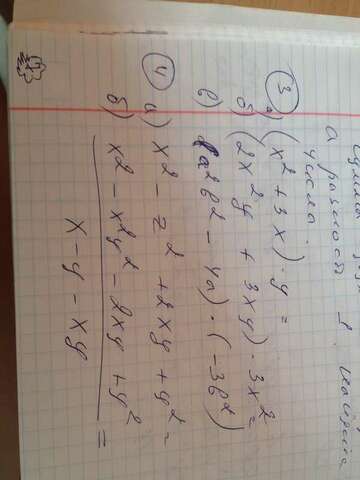 а разность
числа
③ а) (x² + 3x) · y =
б) (2x²y + 3xy) · 3x² =
в) (a²b² - 4a) · (-3b²)
④ а) x² - z² + 2xy + y² =
б) x² - x²y² - 2xy + y² =
x - y - xy